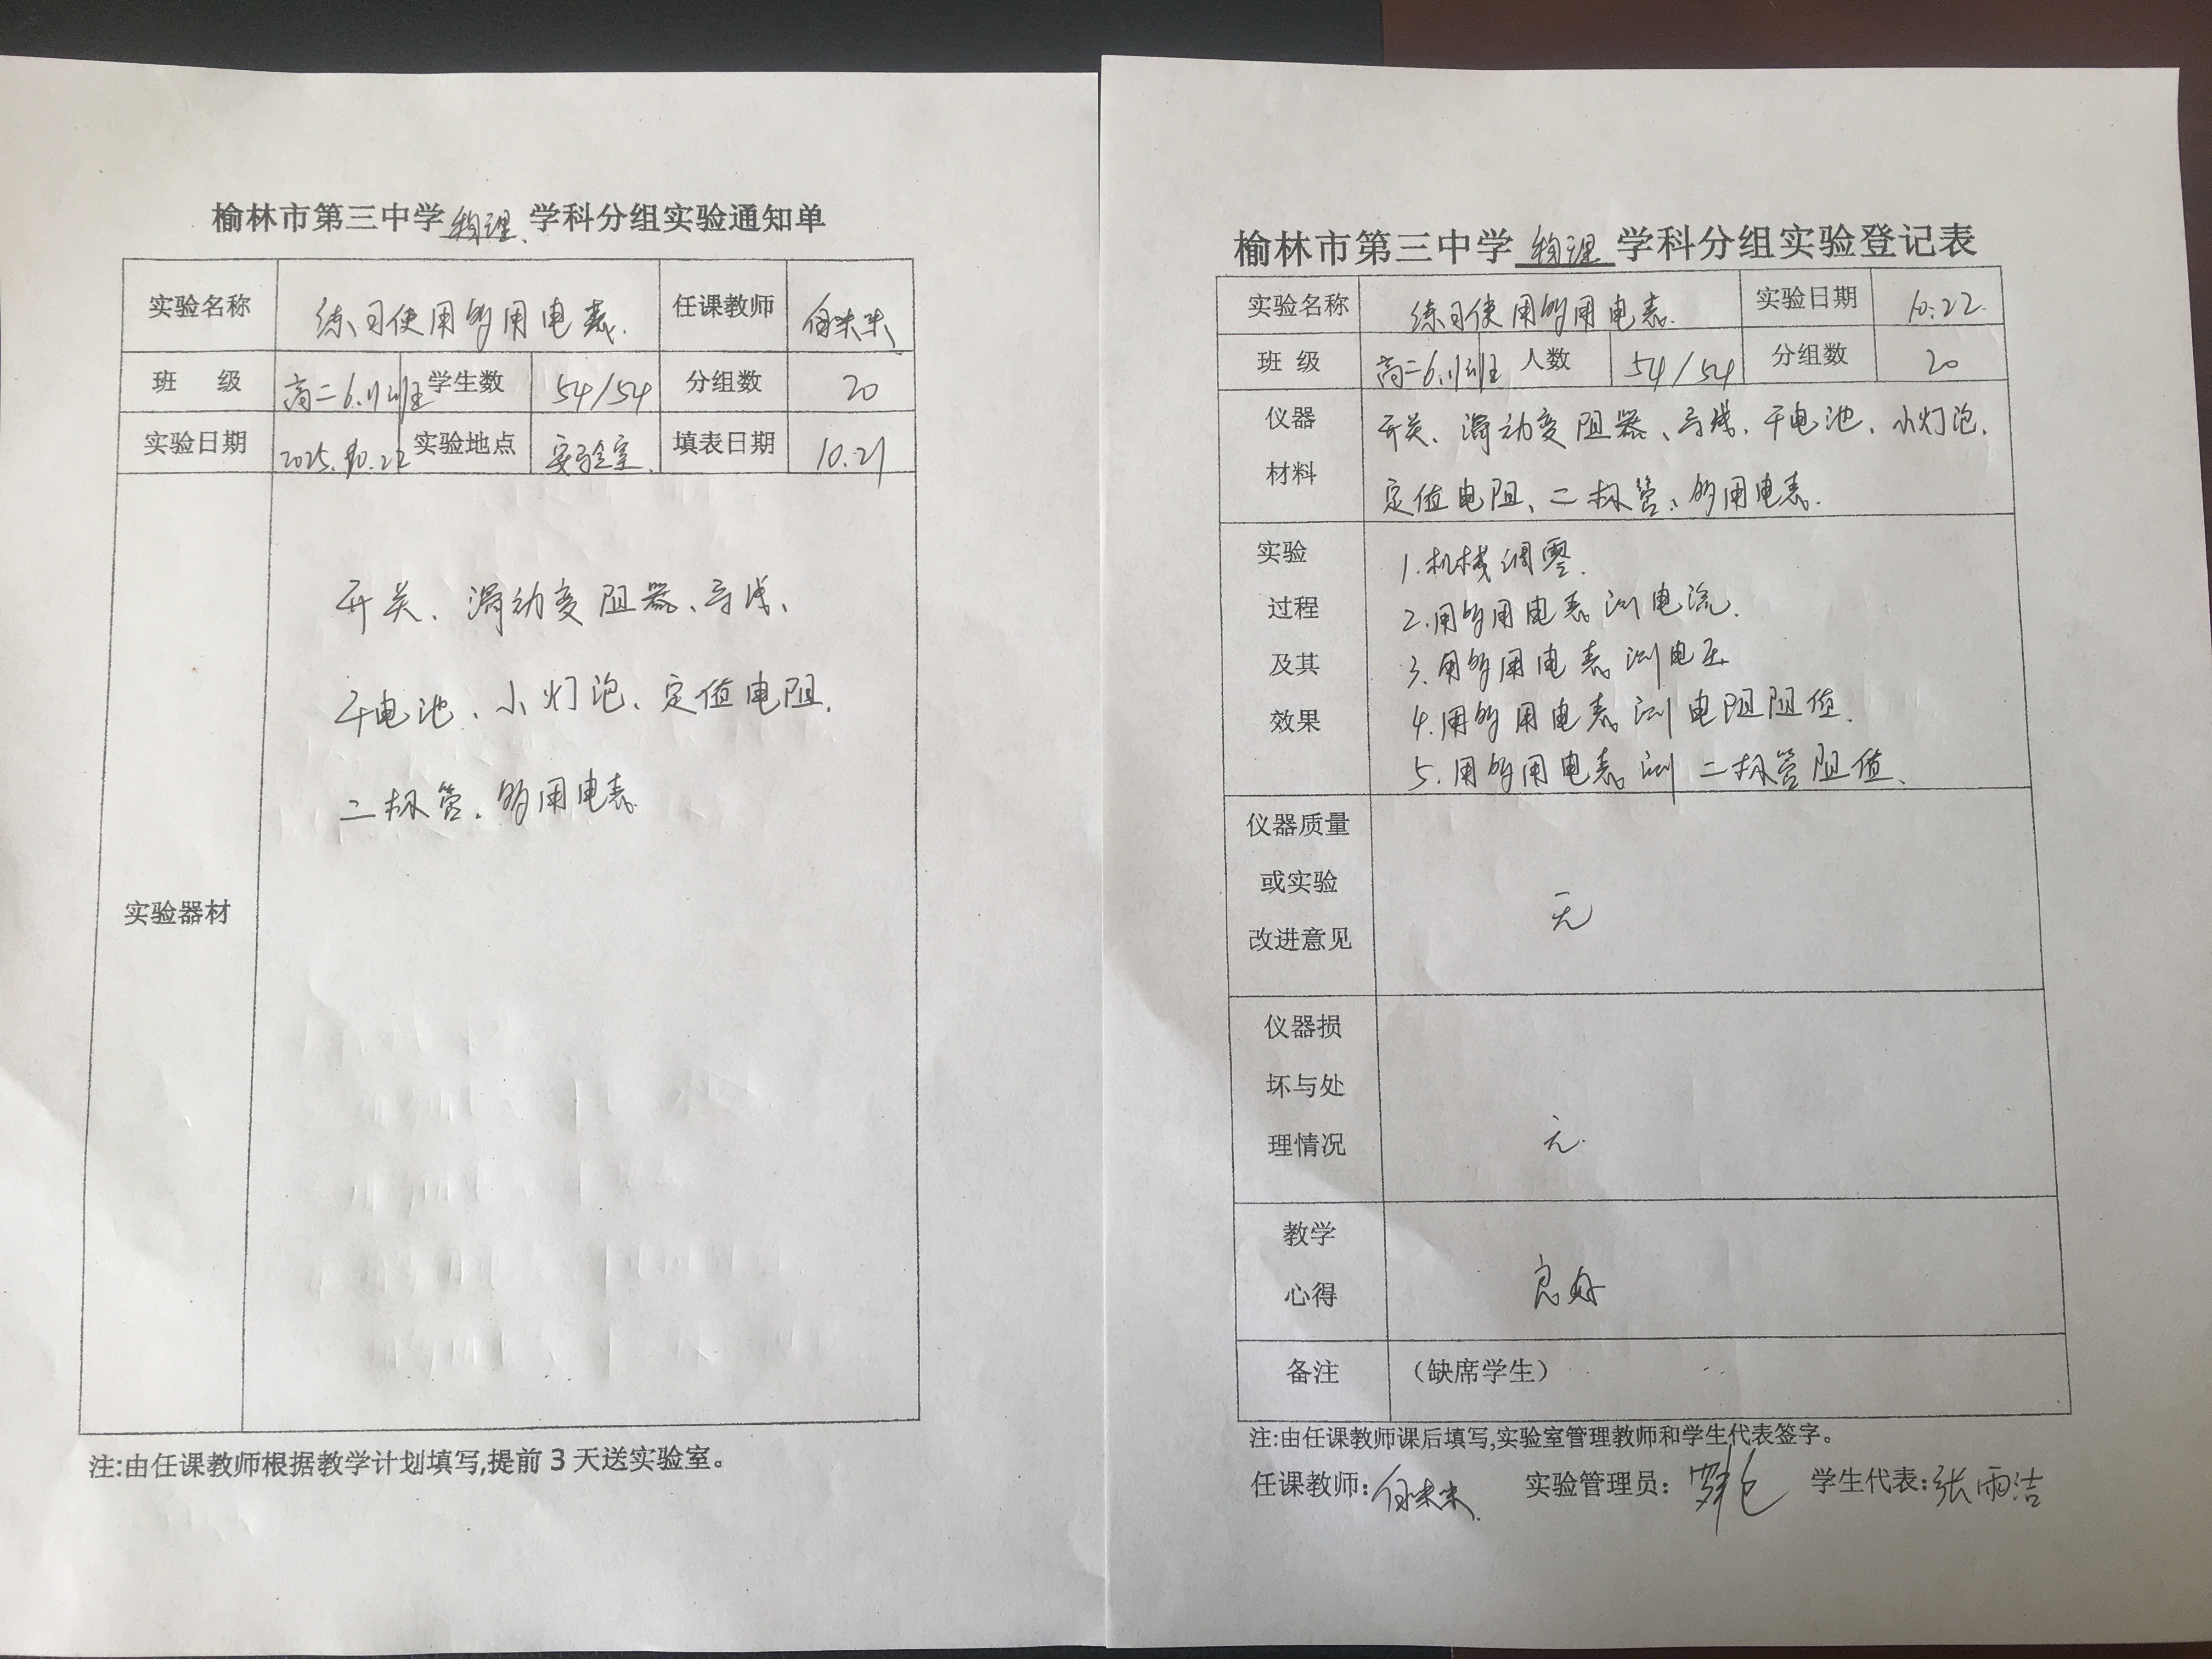 榆林市第三中学 物理 学科分组实验通知单
实验名称 练习使用多用电表. 任课教师
班 级 高二6.11班 学生数 54/54 分组数 20
实验日期 2025.10.22 实验地点 实验室. 填表日期 10.21
实验器材
开关、滑动变阻器、导线、
干电池、小灯泡、定值电阻.
二极管、多用电表.
注:由任课教师根据教学计划填写,提前3天送实验室。
榆林市第三中学 物理 学科分组实验登记表
实验名称 练习使用多用电表. 实验日期 10.22.
班 级 高二6.11班 人数 54/54 分组数 20
仪器材料
开关、滑动变阻器、导线、干电池、小灯泡、
定值电阻、二极管、多用电表.
实验过程及其效果
1.机械调零.
2.用多用电表测电流.
3.用多用电表测电压.
4.用多用电表测电阻阻值.
5.用多用电表测二极管阻值.
仪器质量或实验改进意见
无
仪器损坏与处理情况
无.
教学心得
良好
备注 （缺席学生）
注:由任课教师课后填写,实验室管理教师和学生代表签字。
任课教师: 实验管理员: 学生代表:张雨洁